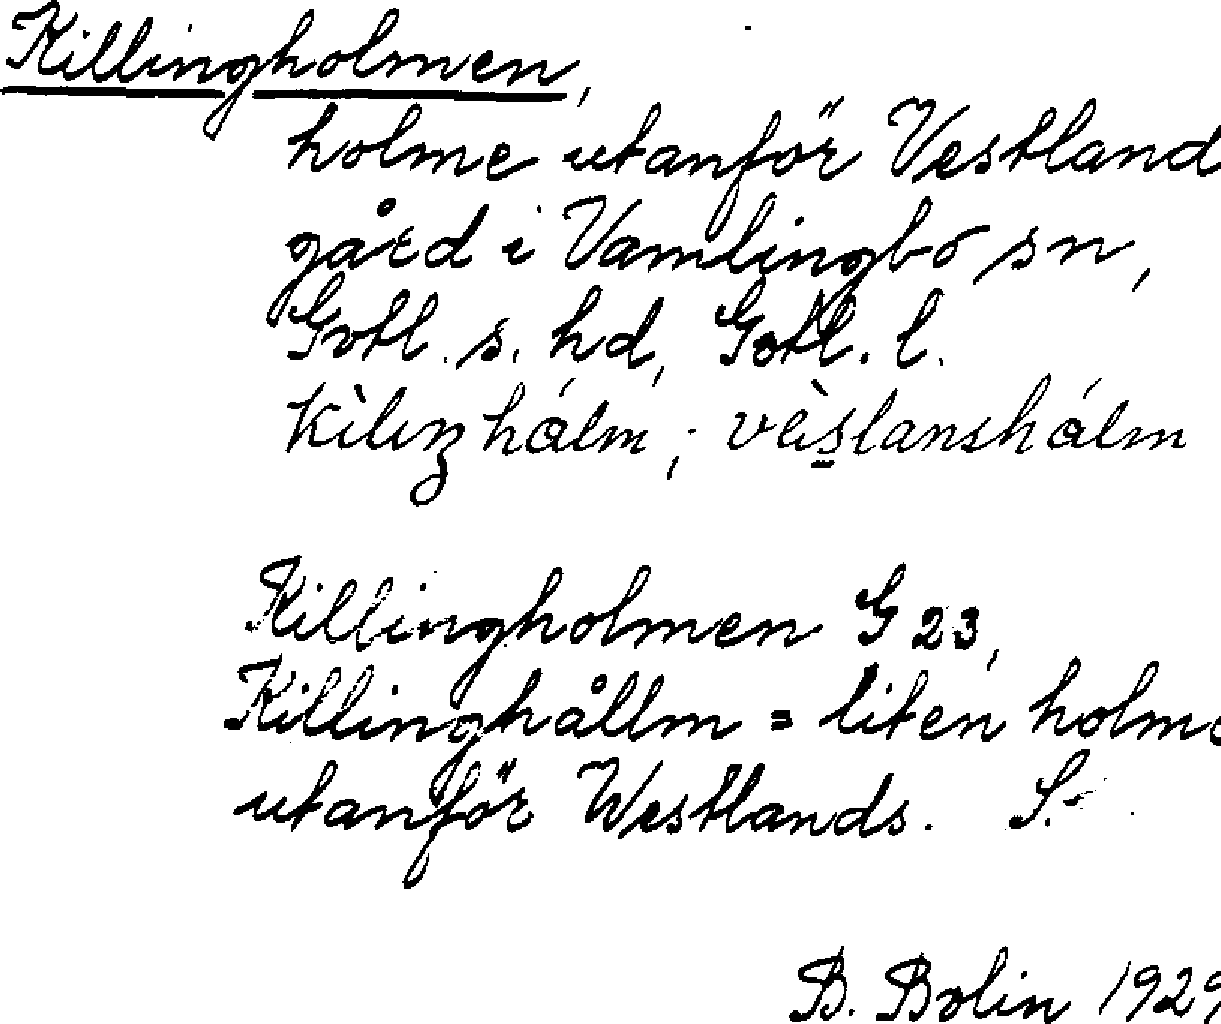 Killingholmen,
holme utanför Vestland
gård i Vamlingbo sn,
Gotl. s. hd, Gotl. l.
kìlıŋhálm, ; vèslanshálm
Killingholmen G 23,
Killinghållm = liten holme
utanför Westlands. S.
B. Bolin 1929